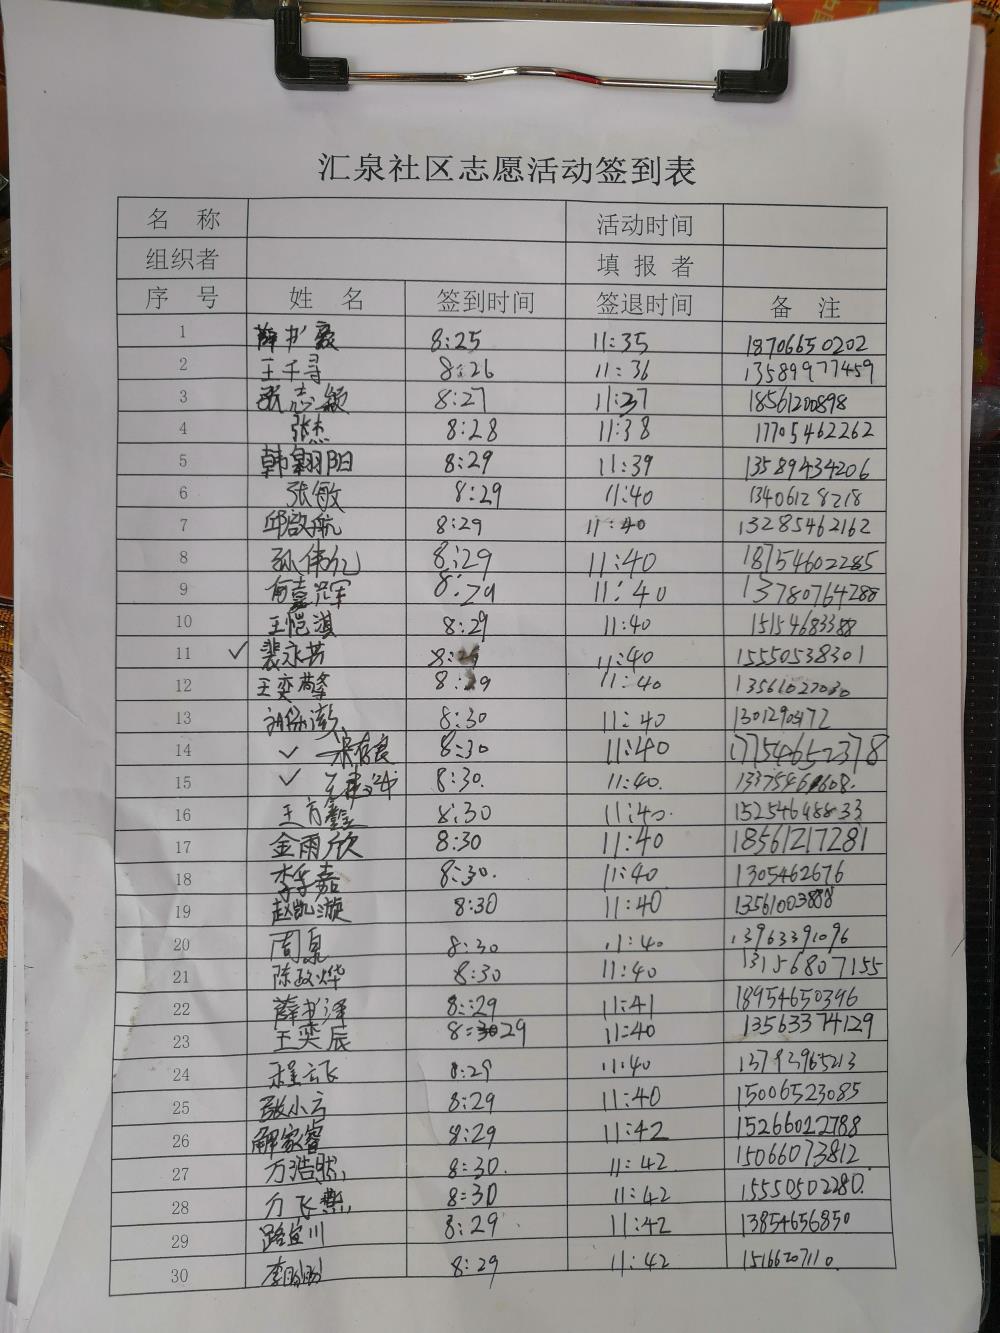 汇泉社区志愿活动签到表
名 称 活动时间
组织者 填 报 者
序 号 姓 名 签到时间 签退时间 备 注
1 薛书毅 8:25 11:35 18706650202
2 王千寻 8:26 11:36 13589977459
3 张志颖 8:27 11:37 18561200898
4 张杰 8:28 11:38 17705462262
5 韩翱阳 8:29 11:39 13589434206
6 张敏 8:29 11:40 13406128218
7 邱啟航 8:29 11:40 13285462162
8 孙伟亿 8:29 11:40 18754602285
9 嘉冠 8:29 11:40 13780764288
10 王恺淇 8:29 11:40 15154683388
11 ✓ 裴永芳 8:29 11:40 15550538301
12 王奕擎 8:29 11:40 13561027030
13 8:30 11:40 1301290472
14 ✓ 宋存良 8:30 11:40 17754652378
15 ✓ 8:30. 11:40.
16 王方鑫 8:30 11:40. 15254648833
17 金雨欣 8:30 11:40 18561217281
18 李华嘉 8:30. 11:40 1305462676
19 赵凯漩 8:30 11:40 13561003888
20 周泉 8:30 11:40 13963391096
21 陈政烨 8:30 11:40 13156807155
22 薛书泽 8:29 11:41 18954650396
23 王奕辰 8:29 11:40 13563374129
24 程云飞 8:29 11:40 13793965213
25 张小云 8:29 11:40 15006523085
26 解家睿 8:29 11:42 15266012788
27 万浩然 8:30. 11:42 15066073812.
28 万飞燕 8:30 11:42 15550502280.
29 路宜川 8:29 11:42 13854656850
30 李盼盼 8:29 11:42 15166207110.